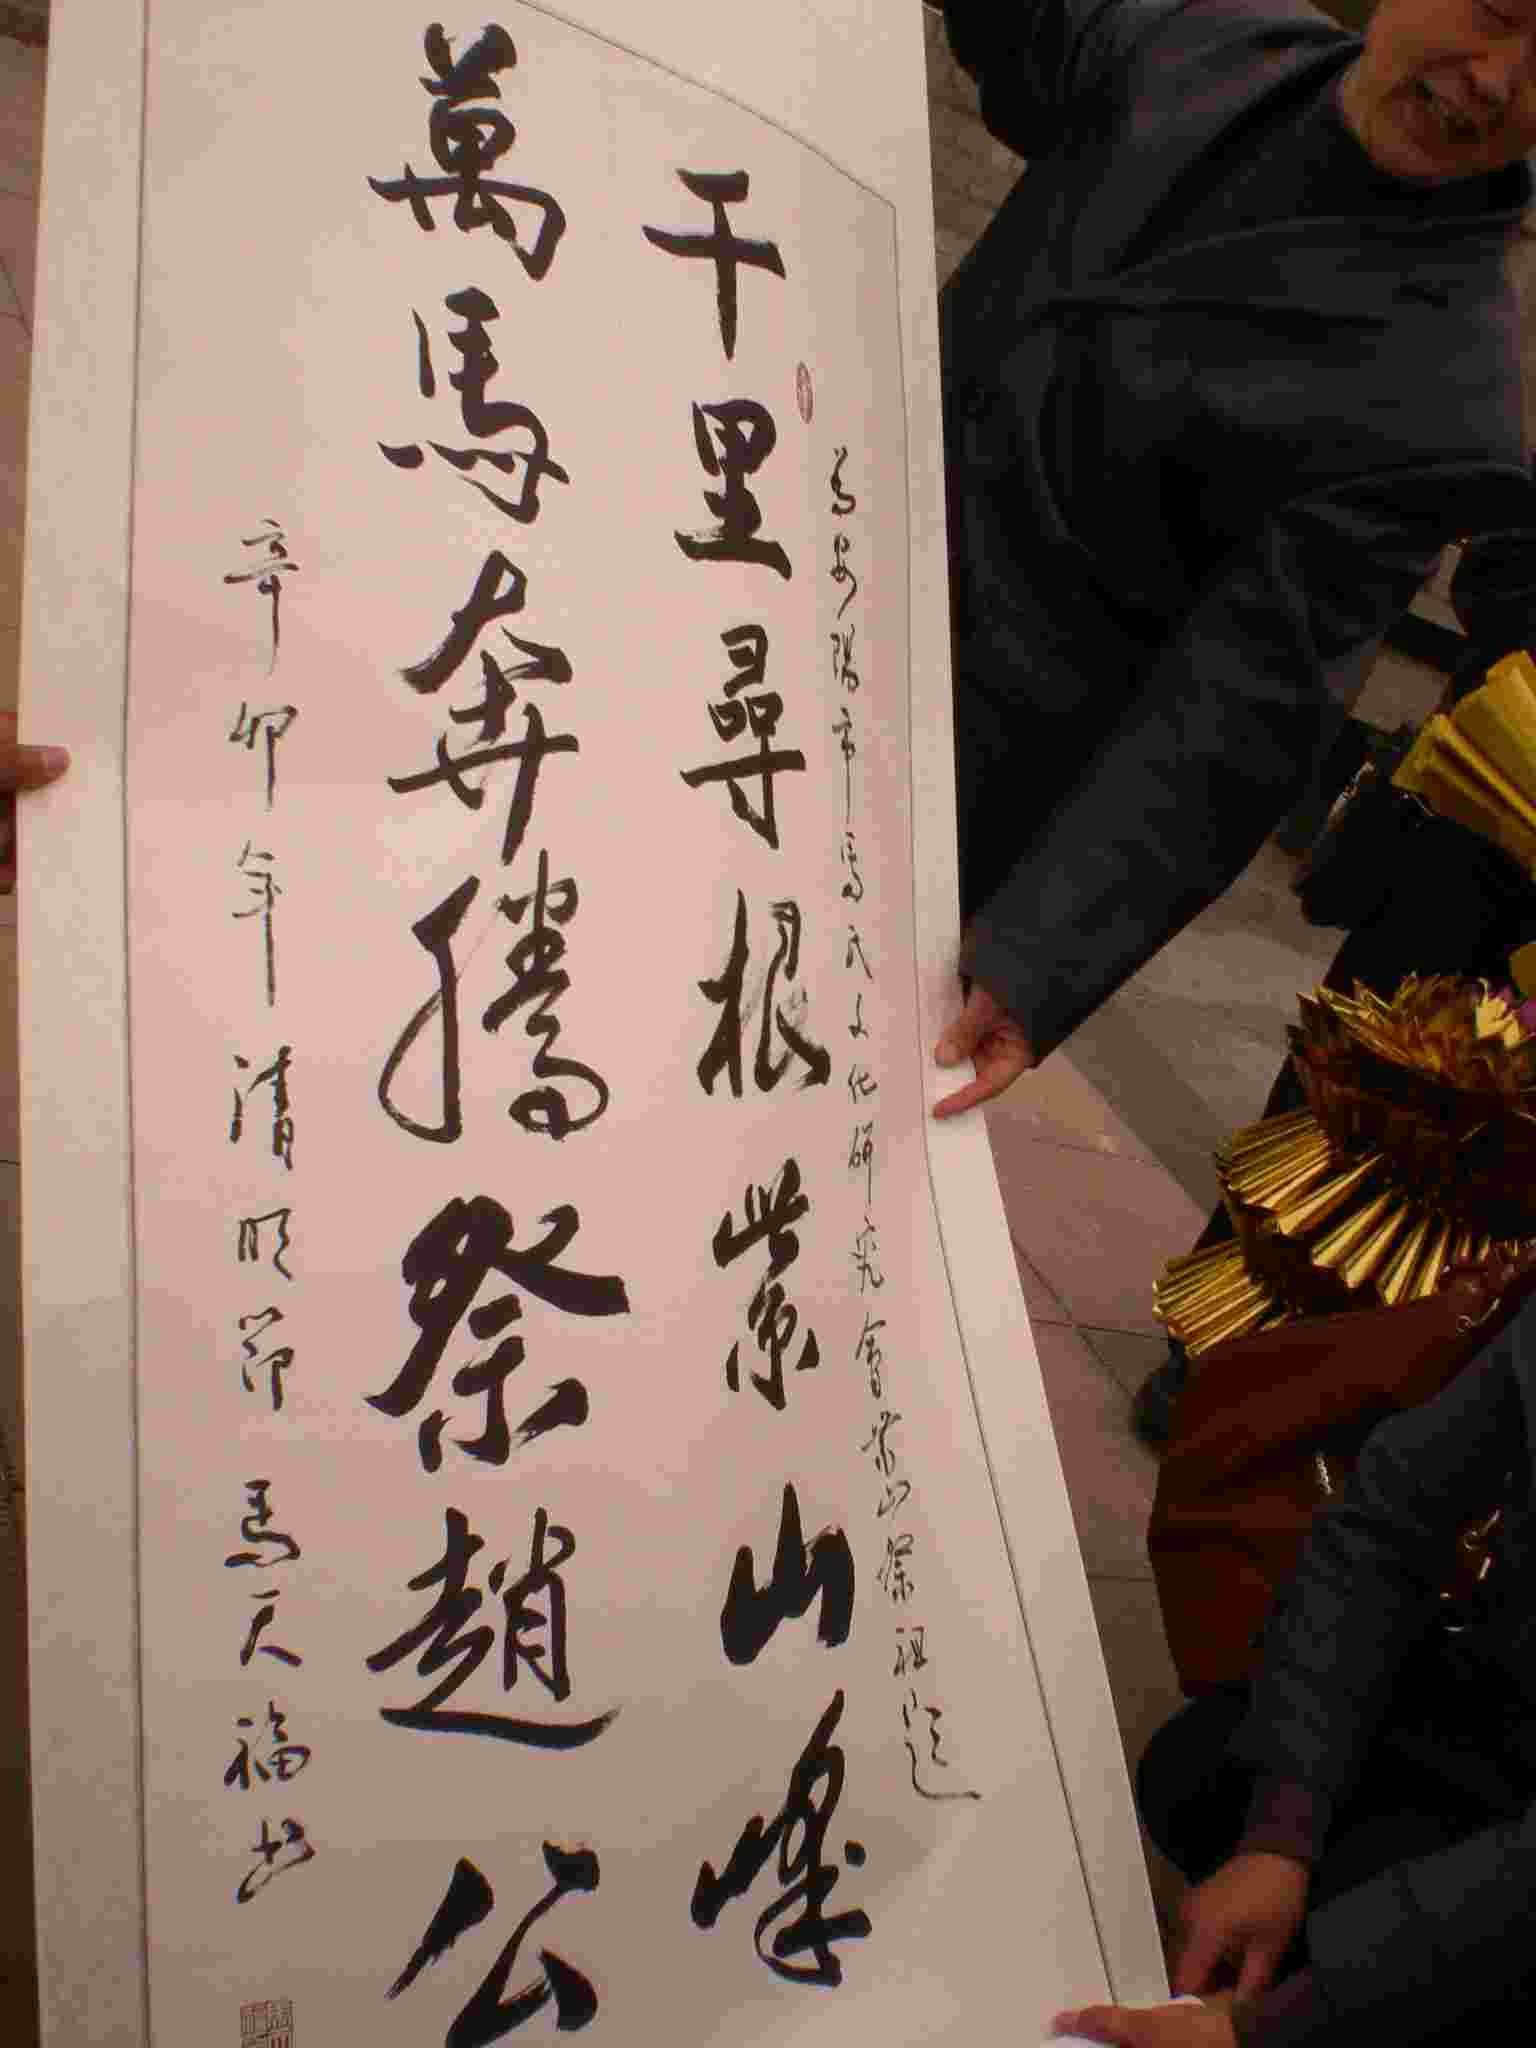 为安陽市馬氏文化研究會紫山祭祖題
千里尋根紫山峰
萬馬奔騰祭趙公
辛卯年清明節馬天福书